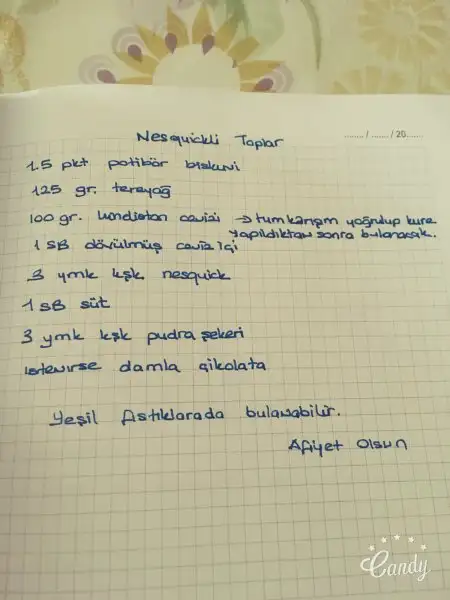 Nesquickli Toplar
....... / ....... / 20.......
1.5 pkt potibör bisküvi
125 gr. tereyağ
100 gr. hindistan cevizi → tüm karışım yoğrulup küre
yapıldıktan sonra bulanacak.
1 SB dövülmüş ceviz içi
3 ymk kşk nesquick
1 SB süt
3 ymk kşk pudra şekeri
istenirse damla çikolata
Yeşil fıstıklarada bulanabilir.
Afiyet Olsun
Candy